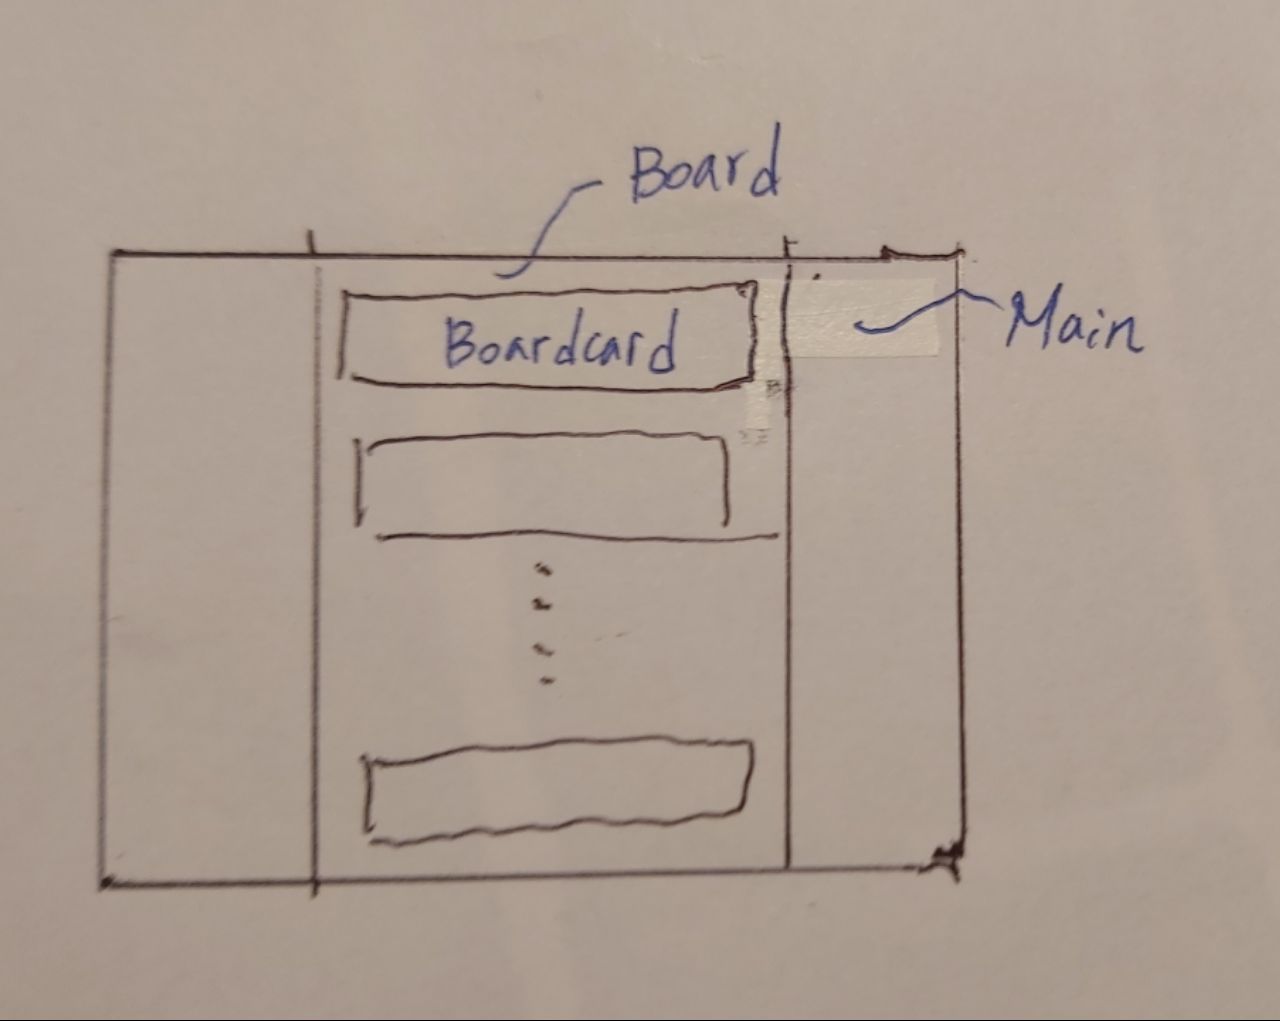 Board
Boardcard
Main